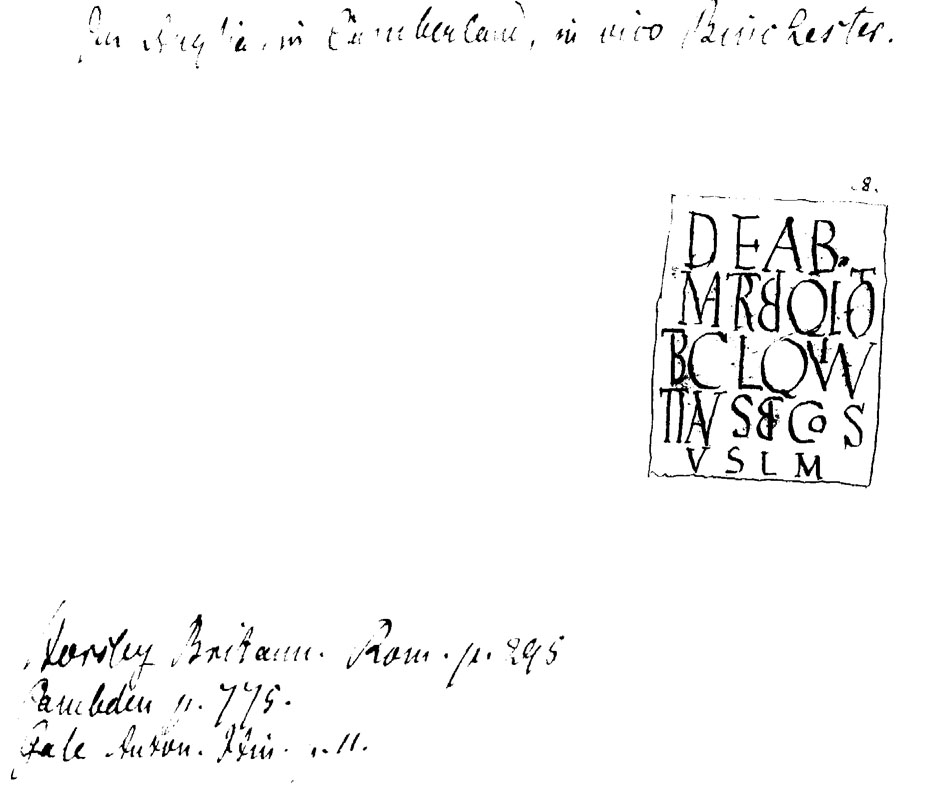 In Anglia, in Cumberland, in vico Binchester.
.8.
DEAB.
MTRBQLO
BCLQVW
TIAVSBCoS
VSLM
Horsley Britann. Rom. p. 295
Cambden p. 775.
Gale Anton. Itin. p. 11.